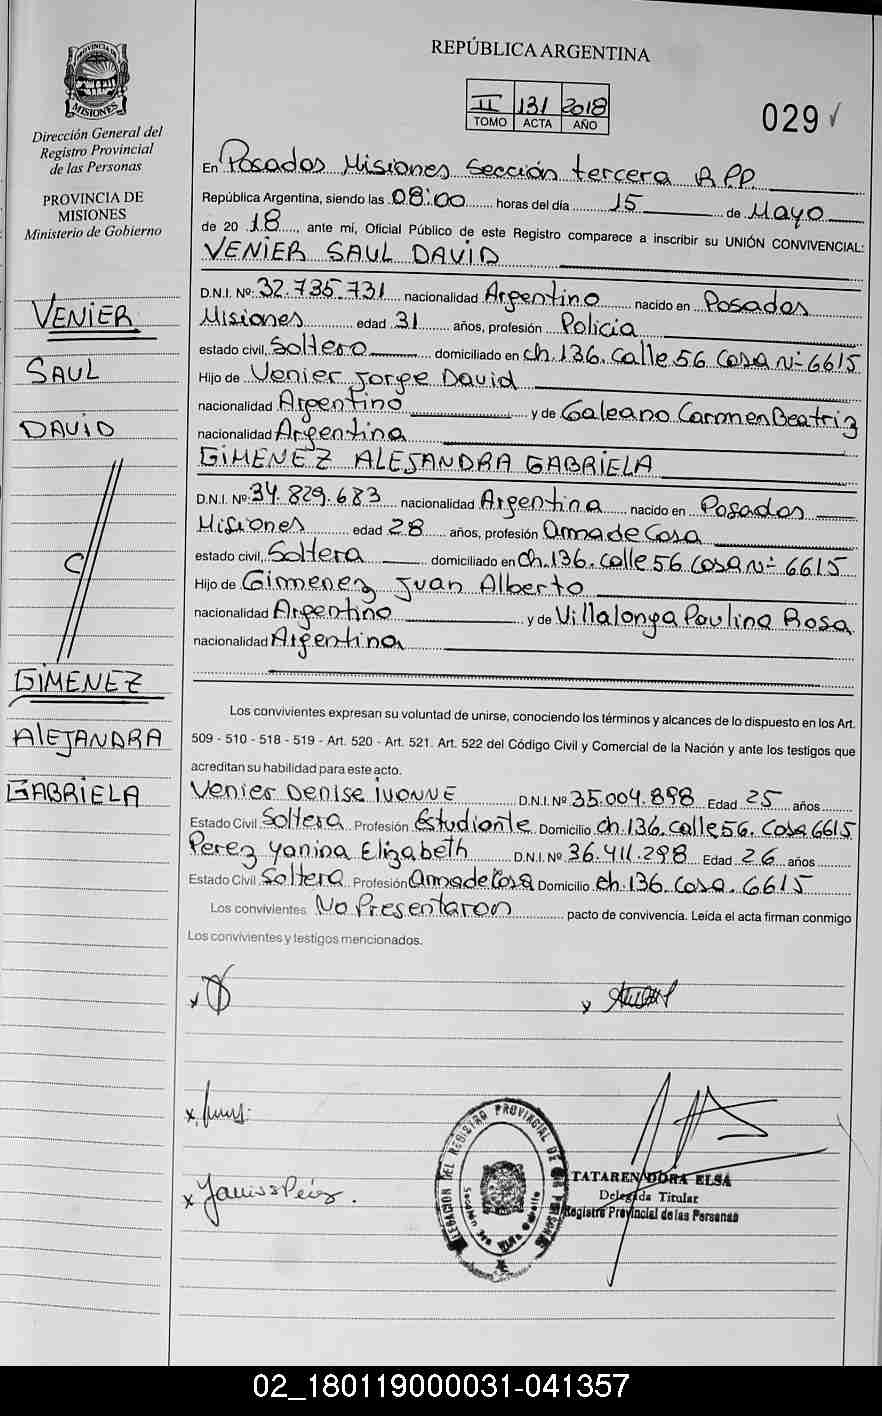 REPÚBLICA ARGENTINA
II 131 2018
TOMO ACTA AÑO
029
PROVINCIA DE
MISIONES
Dirección General del
Registro Provincial
de las Personas
PROVINCIA DE
MISIONES
Ministerio de Gobierno
VENIER
SAUL
DAVID
GIMENEZ
AlEJANDRA
GABRiELA
En Posadas Misiones Sección tercera R.P.P.
República Argentina, siendo las 08:00 horas del día 15 de Mayo
de 20 18, ante mí, Oficial Público de este Registro comparece a inscribir su UNIÓN CONVIVENCIAL:
VENIER SAUL DAVID
D.N.I. Nº: 32.735.731 nacionalidad Argentino nacido en Posadas
Misiones edad 31 años, profesión Policía
estado civil, Soltero domiciliado en ch.136. Calle 56 Casa Nº 6615
Hijo de Venier Jorge David
nacionalidad Argentino y de Galeano Carmen Beatriz
nacionalidad Argentina
GIMENEZ ALEJANDRA GABRIELA
D.N.I. Nº: 34.829.683 nacionalidad Argentina nacido en Posadas
Misiones edad 28 años, profesión Ama de Casa
estado civil, Soltera domiciliado en ch.136. calle 56 Casa Nº 6615
Hijo de Gimenez Juan Alberto
nacionalidad Argentino y de Villalonga Paulina Rosa
nacionalidad Argentina
Los convivientes expresan su voluntad de unirse, conociendo los términos y alcances de lo dispuesto en los Art.
509 - 510 - 518 - 519 - Art. 520 - Art. 521. Art. 522 del Código Civil y Comercial de la Nación y ante los testigos que
acreditan su habilidad para este acto.
Venier DENISE IVONNE D.N.I. Nº 35.004.898 Edad 25 años
Estado Civil Soltera Profesión Estudiante Domicilio ch.136. calle 56. Casa 6615
Perez Yanina Elizabeth D.N.I. Nº 36.411.298 Edad 26 años
Estado Civil Soltera Profesión Ama de Casa Domicilio ch.136. Casa. 6615
Los convivientes No Presentaron pacto de convivencia. Leída el acta firman conmigo
Los convivientes y testigos mencionados.
TATAREN DORA ELSA
Delegada Titular
Registro Provincial de las Personas
02_180119000031-041357